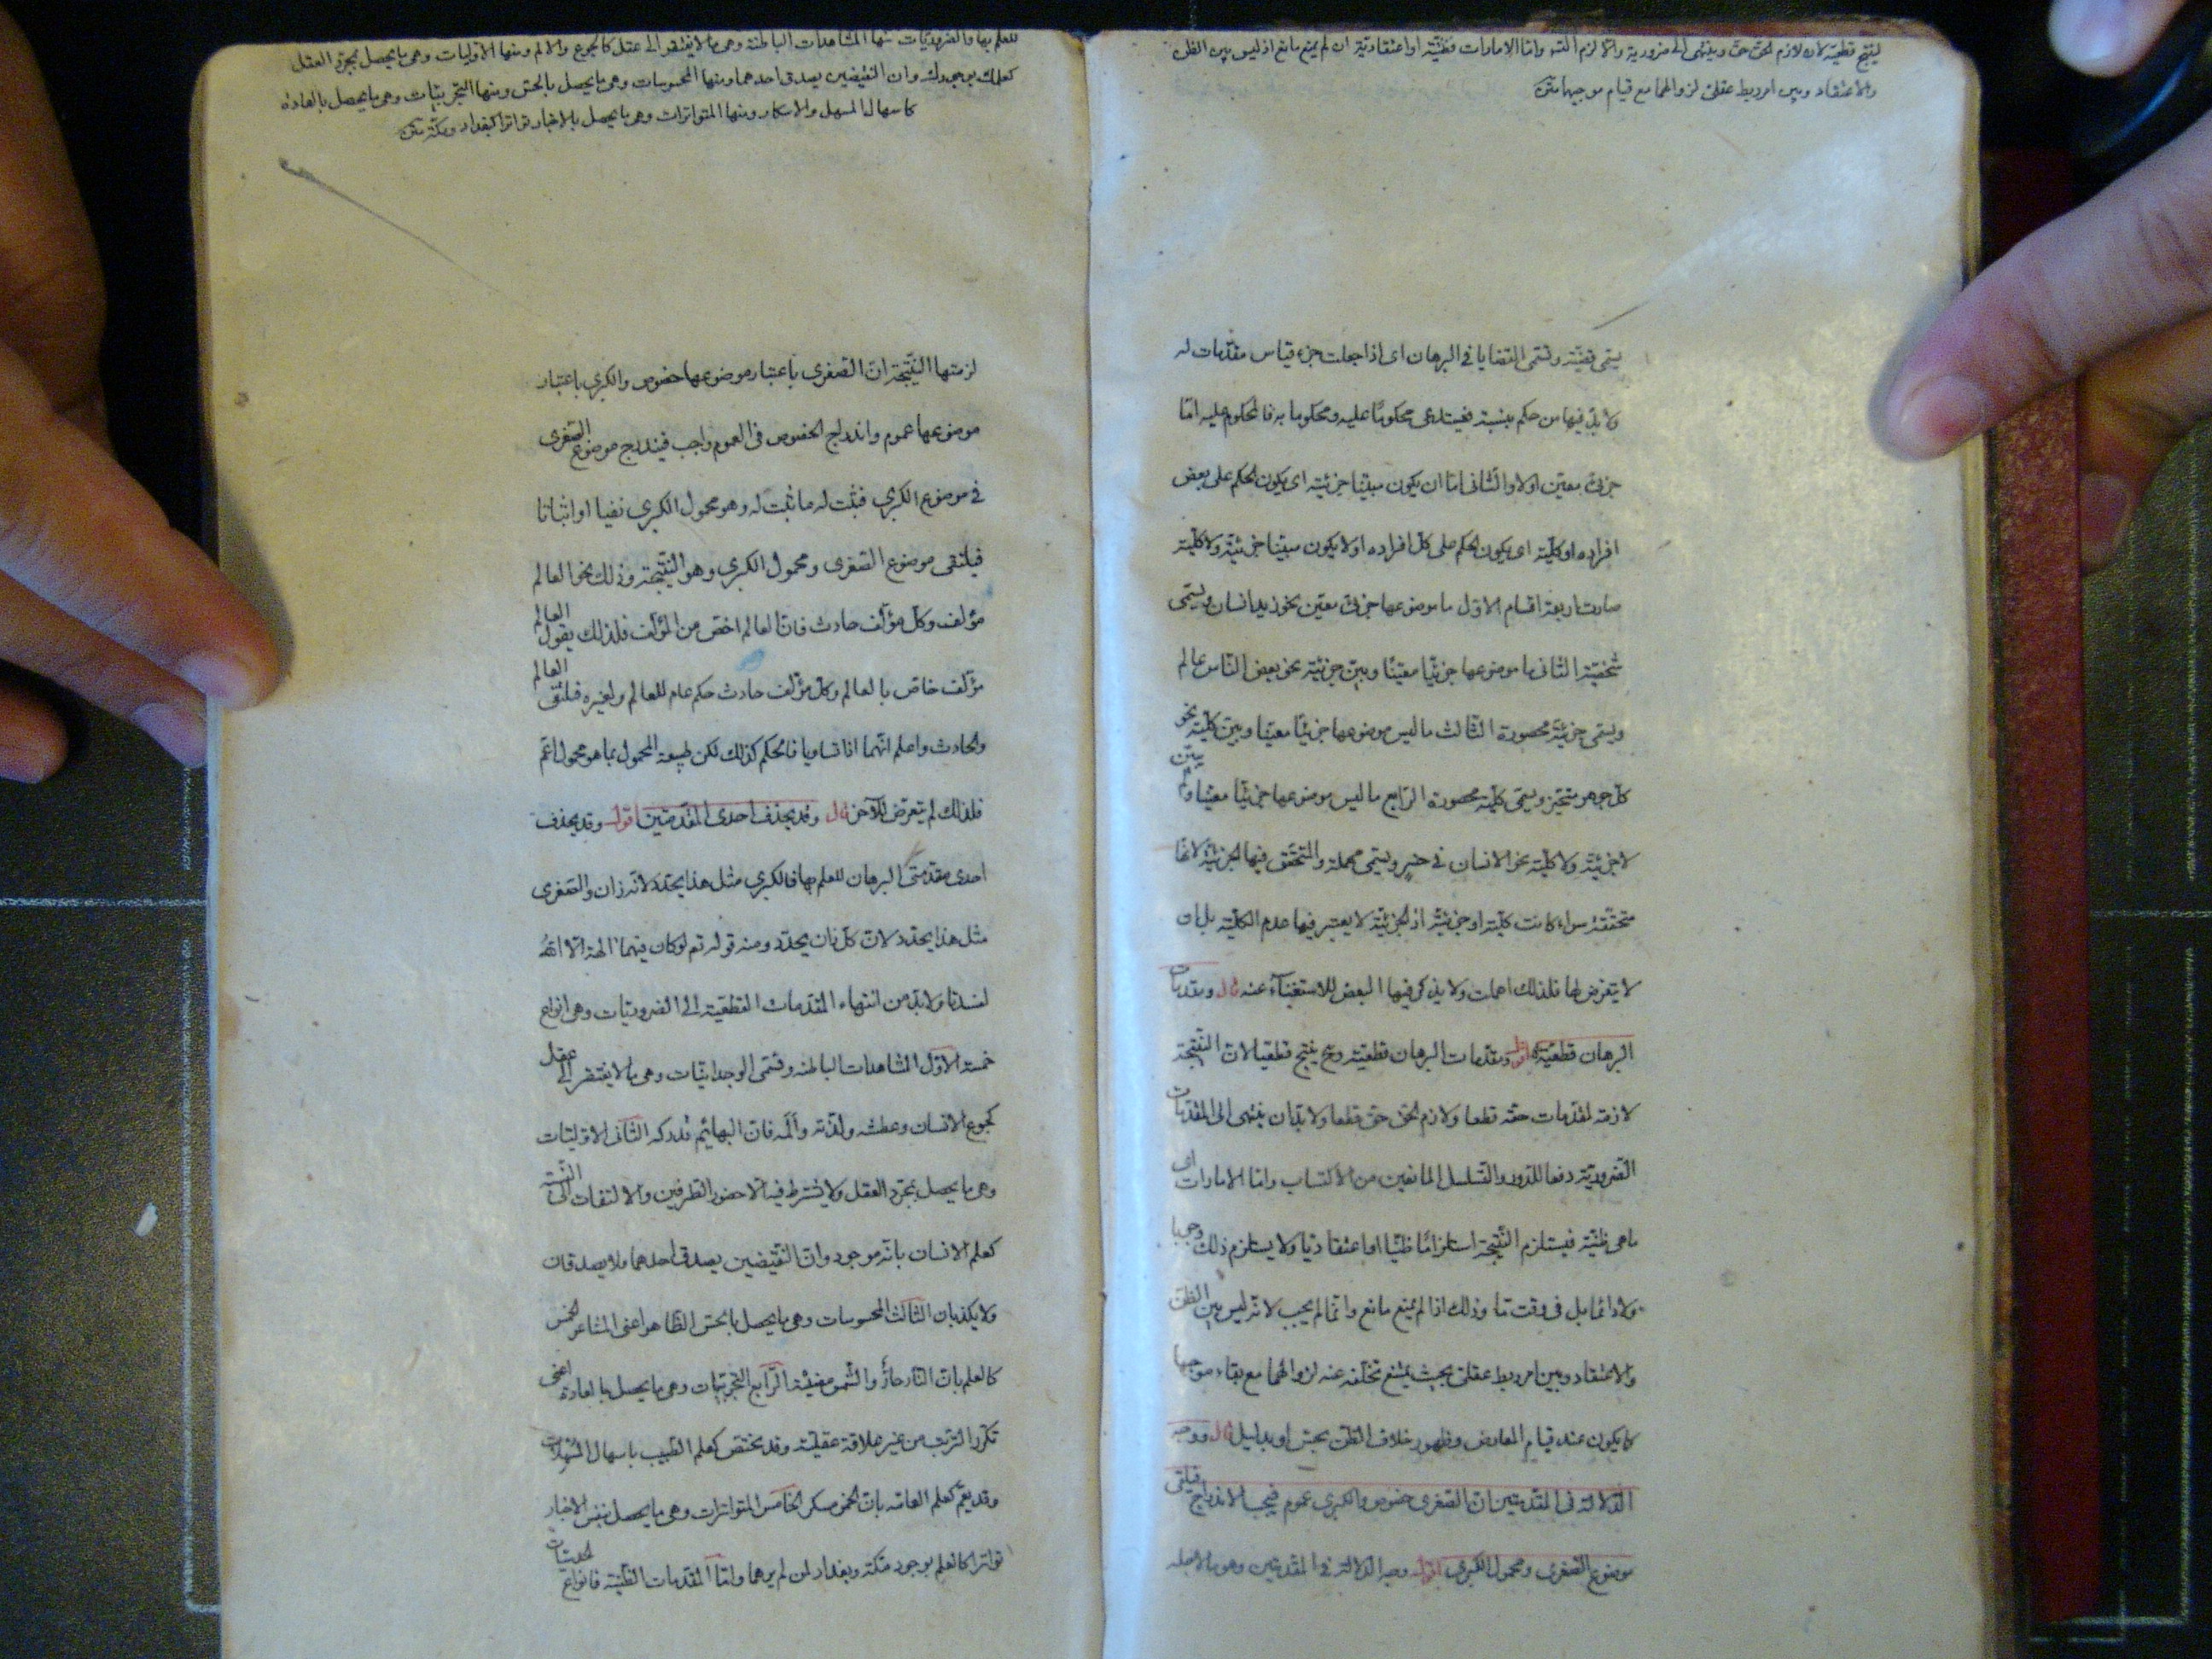 لينتج قطعية لان لازم الحق حق وينتهى الى ضرورية والا لزم التسـ واما الامارات فظنية او اعتقادية ان لم يمنع مانع اذ ليس بين الظن
والاعتقاد وبين امر ربط عقلى لزوالهما مع قيام موجبهما متن
يسمى قضية وتسمى القضايا فى البرهان اى اذا جعلت جزء قياس مقدمات له
ولا بد فيها من حكم بنسبة فيستدعى محكوما عليه ومحكوما به فالمحكوم عليه اما
جزئى معين او لا والثانى اما ان يكون مبينا جزئيته اى يكون الحكم على بعض
افراده او كليته اى يكون الحكم على كل افراده او لا يكون مبينا جزئيته ولا كليته
صارت اربعة اقسام الاول ما موضوعها جزئى معين نحو زيد انسان ويسمى
شخصية الثانى ما موضوعها جزئيا معينا وبين جزئيته نحو بعض الناس عالم
ويسمى جزئية محصورة الثالث ما ليس موضوعها جزئيا معينا وبين كليته نحو
كل جوهر متحيز ويسمى كلية محصورة الرابع ما ليس موضوعها جزئيا معينا ولم يبين
لا جزئيته ولا كليته نحو الانسان فى خسر ويسمى مهملة والمتحقق فيها الجزئية لانها
متحققة سواء كانت كلية او جزئية اذ الجزئية لا يعتبر فيها عدم الكلية بل بان
لا يتعرض لها فلذلك اهملت ولا يذكر فيها البعض للاستغناء عنه قال ومقدمات
البرهان قطعية اقول ومقدمات البرهان قطعية وح ينتج قطعيا لان النتيجة
لازمة لمقدمات حقة قطعا ولازم الحق حق قطعا ولا بد ان ينتهى الى المقدمات
الضرورية دفعا للدور والتسلسل المانعين من الاكتساب واما الامارات اى
ما هى ظنية فيستلزم النتيجة استلزاما ظنيا او اعتقاديا ولا يستلزم ذلك وجوبا
ولا دائما بل فى وقت ما وذلك اذا لم يمنع مانع وانما لم يجب لانه ليس بين الظن
والاعتقاد وبين امر ربط عقلى بحيث يمتنع تخلفه عنه لزوالهما مع بقاء موجبهما
كما يكون عند قيام المعارض وظهور خلاف الظن بحس او بدليل قال ووجه
الدلالة فى المقدمتين ان الصغرى خصوص والكبرى عموم فيجب الاندراج فيلتقى
موضوع الصغرى ومحمول الكبرى اقول وجه الدلالة فى المقدمتين وهو ما لاجله
للعلم بها والضروريات منها المشاهدات الباطنة وهى ما لا يفتقر الى عقل كالجوع والالم ومنها الاوليات وهى ما يحصل بمجرد العقل
كعلمك بوجودك وان النقيضين يصدق احدهما ومنها المحسوسات وهى ما يحصل بالحس ومنها التجريبيات وهى ما يحصل بالعادة
كاسهال المسهل والاسكار ومنها المتواترات وهى ما يحصل بالاخبار تواترا كبغداد ومكة متن
لزمتها النتيجة ان الصغرى باعتبار موضوعها خصوص والكبرى باعتبار
موضوعها عموم واندراج الخصوص فى العموم واجب فيندرج موضوع الصغرى
فى موضوع الكبرى فيثبت له ما ثبت له وهو محمول الكبرى نفيا او اثباتا
فيلتقى موضوع الصغرى ومحمول الكبرى وهو النتيجة وذلك نحو العالم
مؤلف وكل مؤلف حادث فان العالم اخص من المؤلف فلذلك يقول العالم
مؤلف خاص بالعالم وكل مؤلف حادث حكم عام للعالم ولغيره فيلتقى العالم
والحادث واعلم انهما اذا تساويا فالحكم كذلك لكن طبيعة المحمول بما هو محمول اعم
فلذلك لم يتعرض للآخر قال وقد يحذف احدى المقدمتين اقول وقد يحذف
احدى مقدمتى البرهان للعلم بها فالكبرى مثل هذا يحد لانه زان والصغرى
مثل هذا يحد لان كل زان يحد ومنه قوله تع لو كان فيهما آلهة الا الله
لفسدتا ولا بد من انتهاء المقدمات القطعية الى الضروريات وهى انواع
خمسة الاول المشاهدات الباطنة وتسمى الوجدانيات وهى ما لا يفتقر الى عقل
كجوع الانسان وعطشه ولذته وألمه فان البهائم تدركه الثانى الاوليات
وهى ما يحصل بمجرد العقل ولا يشترط فيه الا حضور الطرفين والالتفات الى النسبة
كعلم الانسان بانه موجود وان النقيضين يصدق احدهما ولا يصدقان
ولا يكذبان الثالث المحسوسات وهى ما يحصل بالحس الظاهر اعنى المشاعر الخمس
كالعلم بان النار حارة والشمس مضيئة الرابع التجريبيات وهى ما يحصل بالعادة اعنى
تكرر الترتب من غير علاقة عقلية وقد يختص كعلم الطبيب باسهال المسهلات
وقد يعم كعلم العامة بان الخمر مسكر الخامس المتواترات وهى ما يحصل بنفس الاخبار
تواترا كالعلم بوجود مكة وبغداد لمن لم يرهما واما المقدمات الظنية فانواع الحدسيات